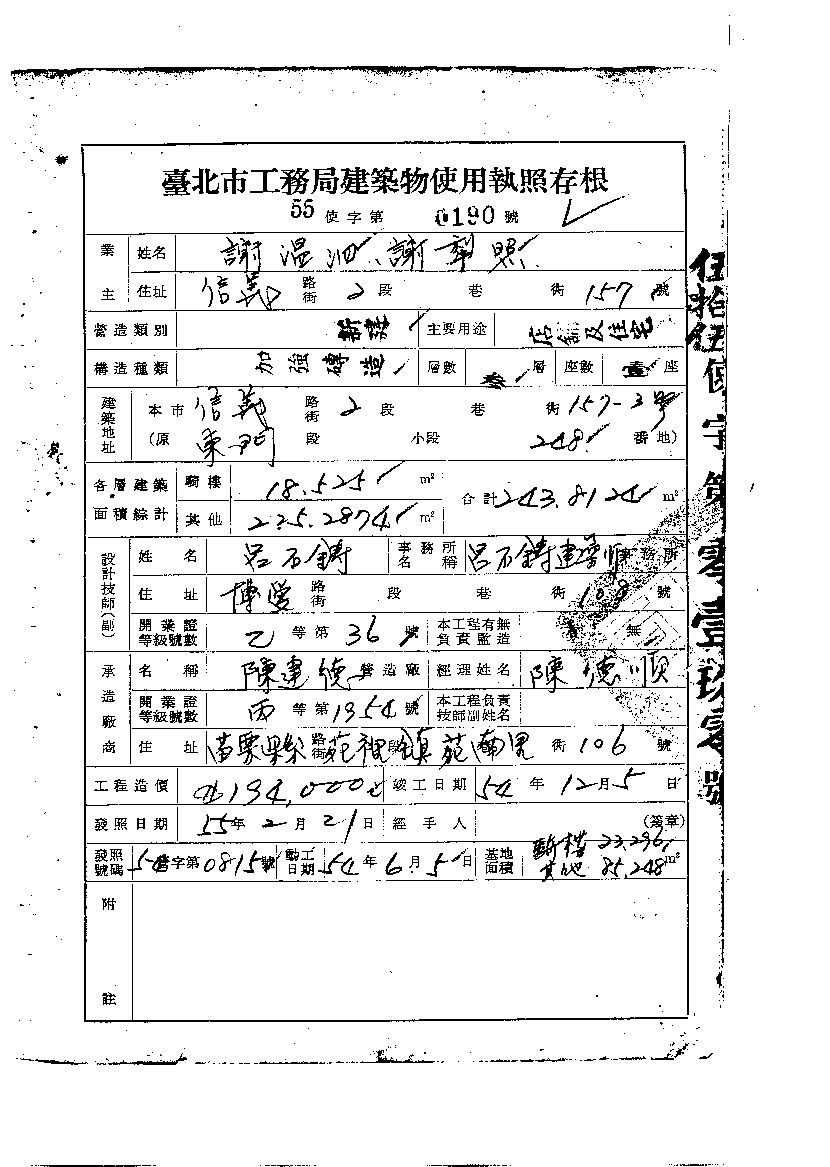 臺北市工務局建築物使用執照存根
55使字第0190號
業主 姓名 謝温泗、謝犂照
住址 信義路街2段巷街157號
營造類別 新建 主要用途 店舖及住宅
構造種類 加強磚造 層數 叁層 座數 壹座
建築地址 本市信義路街2段巷街157-3號
(原東門段小段248番地)
各層建築面積綜計 騎樓 18.525m² 合計243.8124m²
其他 225.2874m²
設計技師(副) 姓名 呂石鑄 事務所名稱 呂石鑄建築師事務所
住址 博愛路街段巷街109號
開業證等級號數 乙等第36號 本工程有無負責監造 無
承造廠商 名稱 陳建德營造廠 經理姓名 陳德順
開業證等級號數 丙等第1354號 本工程負責技師副姓名
住址 苗栗縣路街苑裡鎮段苑南里街106號
工程造價 194,000 竣工日期 54年12月5日
發照日期 55年2月21日 經手人 (簽章)
發照號碼 54營字第0815號 動工日期 54年6月5日 基地面積 騎樓 23.296
其他 85.248m²
附註
伍拾伍使字第零壹玖零號